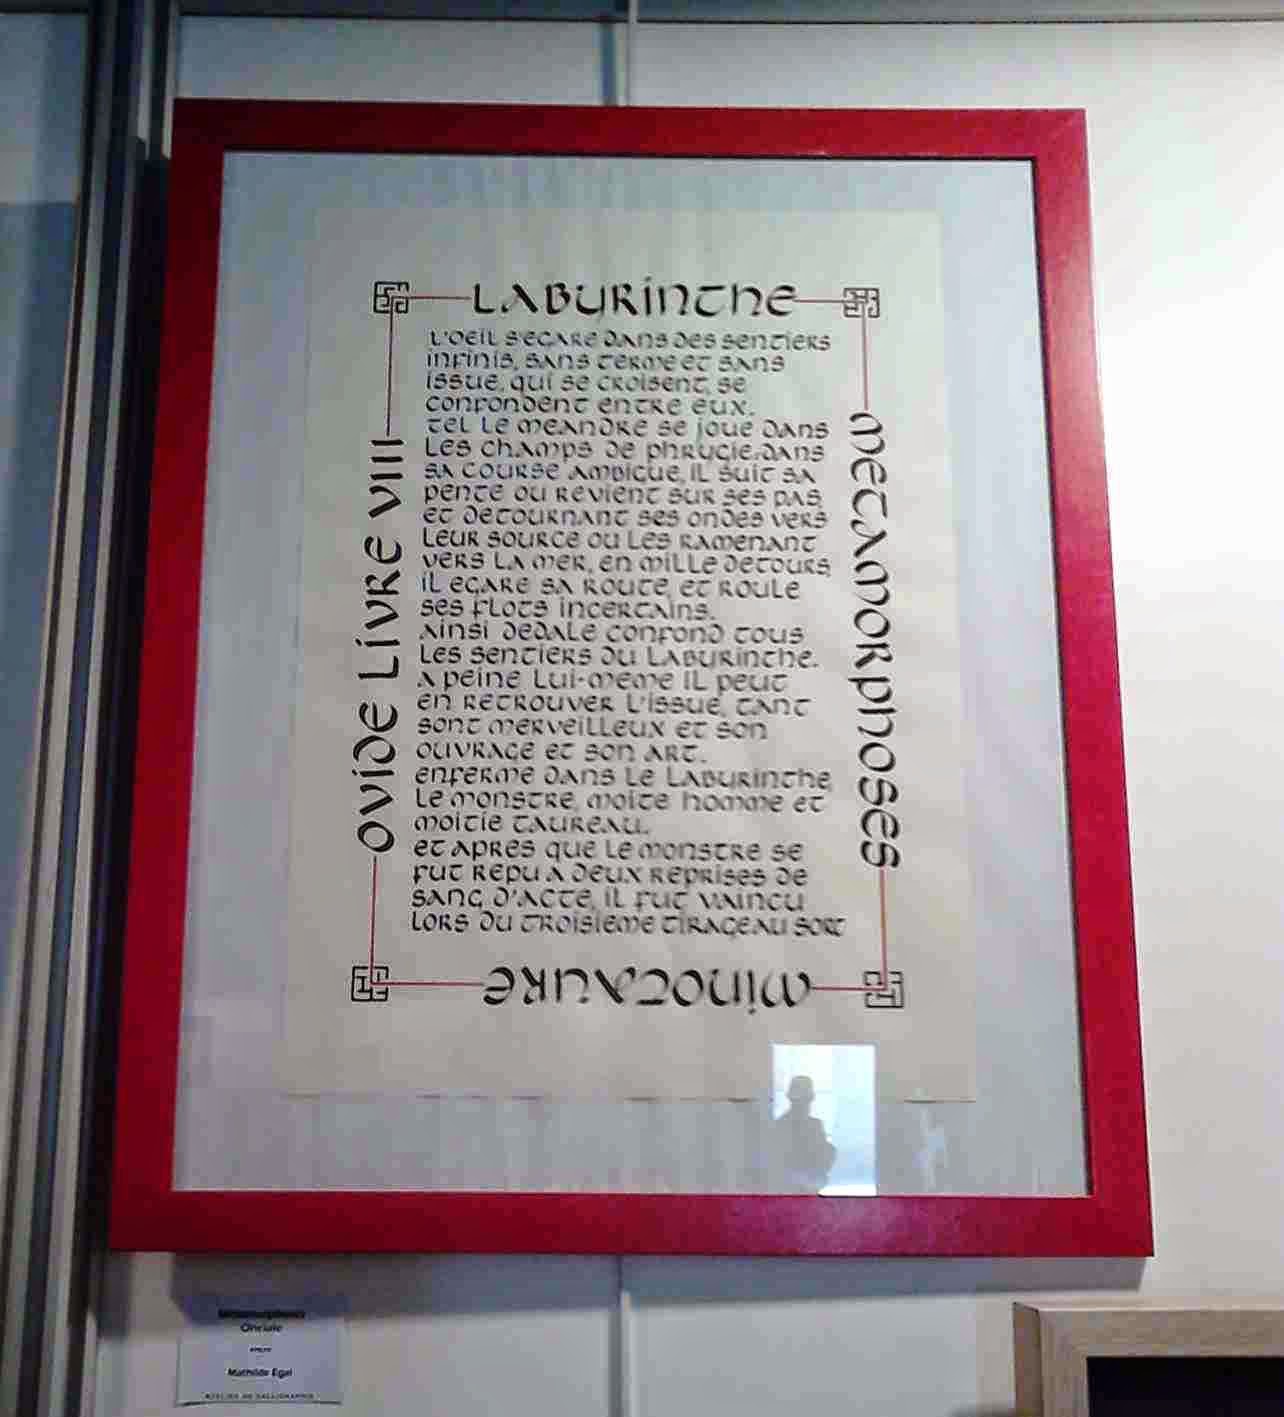 LABYRINTHE
L'OEIL S'EGARE DANS DES SENTIERS
INFINIS, SANS TERME ET SANS
ISSUE, QUI SE CROISENT, SE
CONFONDENT ENTRE EUX.
TEL LE MEANDRE SE JOUE DANS
LES CHAMPS DE PHRYGIE.DANS
SA COURSE AMBIGUE, IL SUIT SA
PENTE OU REVIENT SUR SES PAS,
ET DETOURNANT SES ONDES VERS
LEUR SOURCE OU LES RAMENANT
VERS LA MER, EN MILLE DETOURS,
IL EGARE SA ROUTE, ET ROULE
SES FLOTS INCERTAINS.
AINSI DEDALE CONFOND TOUS
LES SENTIERS DU LABYRINTHE.
A PEINE LUI-MEME IL PEUT
EN RETROUVER L'ISSUE, TANT
SONT MERVEILLEUX ET SON
OUVRAGE ET SON ART.
ENFERME DANS LE LABYRINTHE,
LE MONSTRE, MOITE HOMME ET
MOITIE TAUREAU.
ET APRES QUE LE MONSTRE SE
FUT REPU A DEUX REPRISES DE
SANG D'ACTE, IL FUT VAINCU
LORS DU TROISIEME TIRAGE AU SORT
METAMORPHOSES
MINOTAURE
OVIDE LIVRE VIII
Onciale
Mathilde Egal
ATELIER DE CALLIGRAPHIE